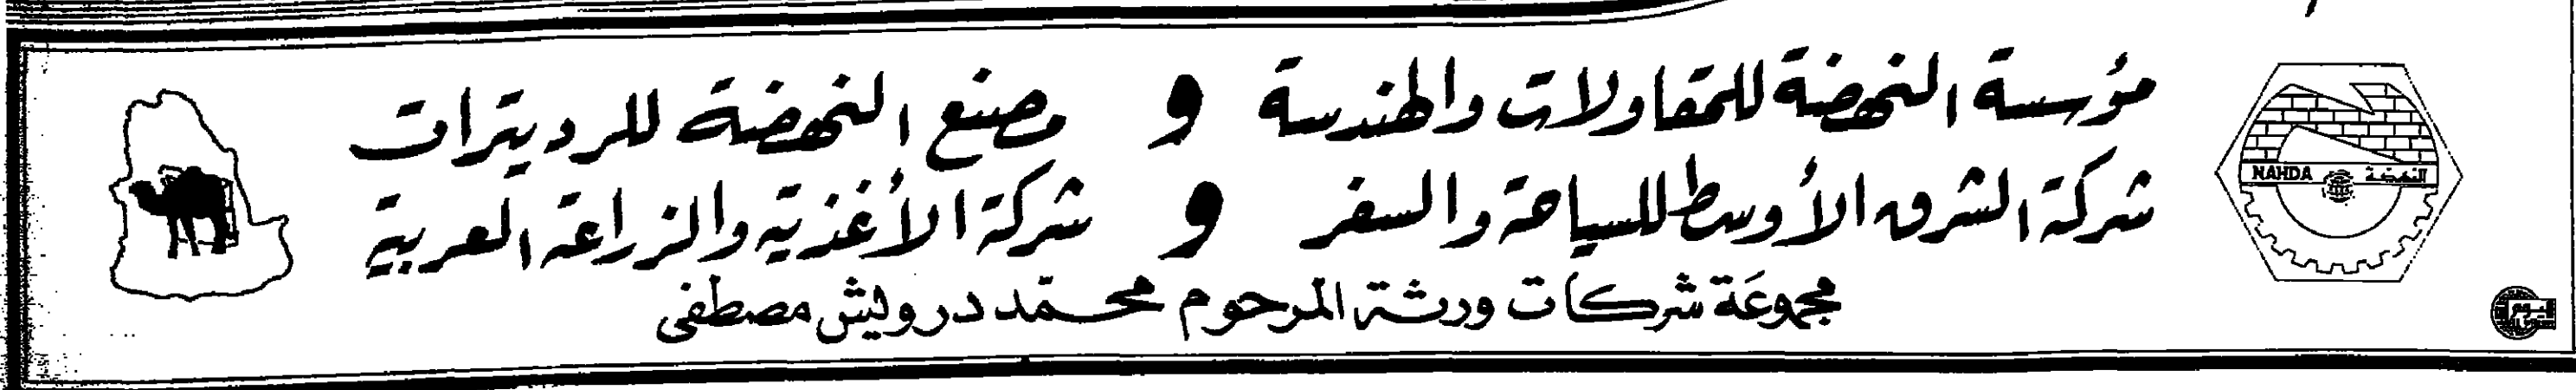 مؤسسة النهضة للمقاولات والهندسة و مصنع النهضة للرديترات
شركة الشرق الأوسط للسياحة والسفر و شركة الأغذية والزراعة العربية
مجموعة شركات ورثة المرحوم محمد درويش مصطفى
NAHDA النهضة
اليوم